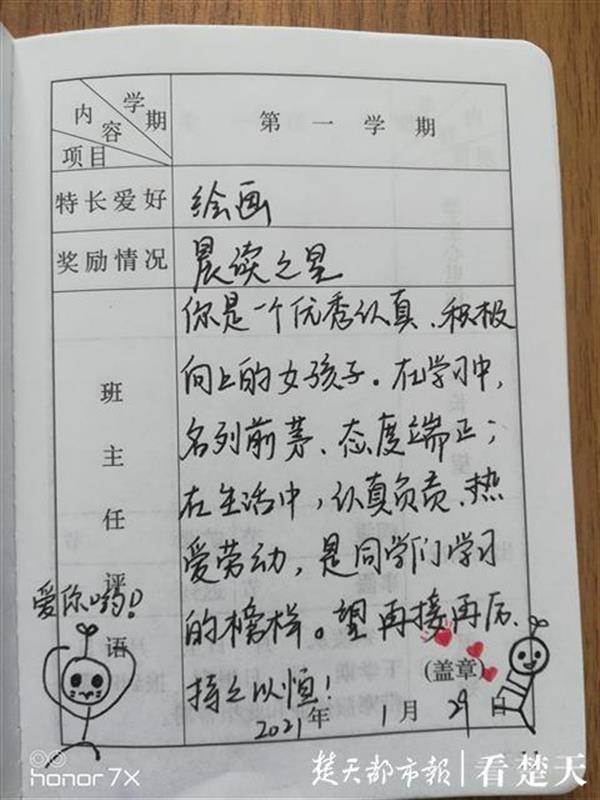 学期
内容
项目
第一学期
特长爱好
绘画
奖励情况
晨读之星
班主任评语
你是一个优秀认真、积极
向上的女孩子。在学习中,
名列前茅、态度端正;
在生活中,认真负责、热
爱劳动,是同学们学习
的榜样。望再接再厉、
持之以恒!
(盖章)
2021年1月29日
爱你哟!
honor 7X
楚天都市报 看楚天